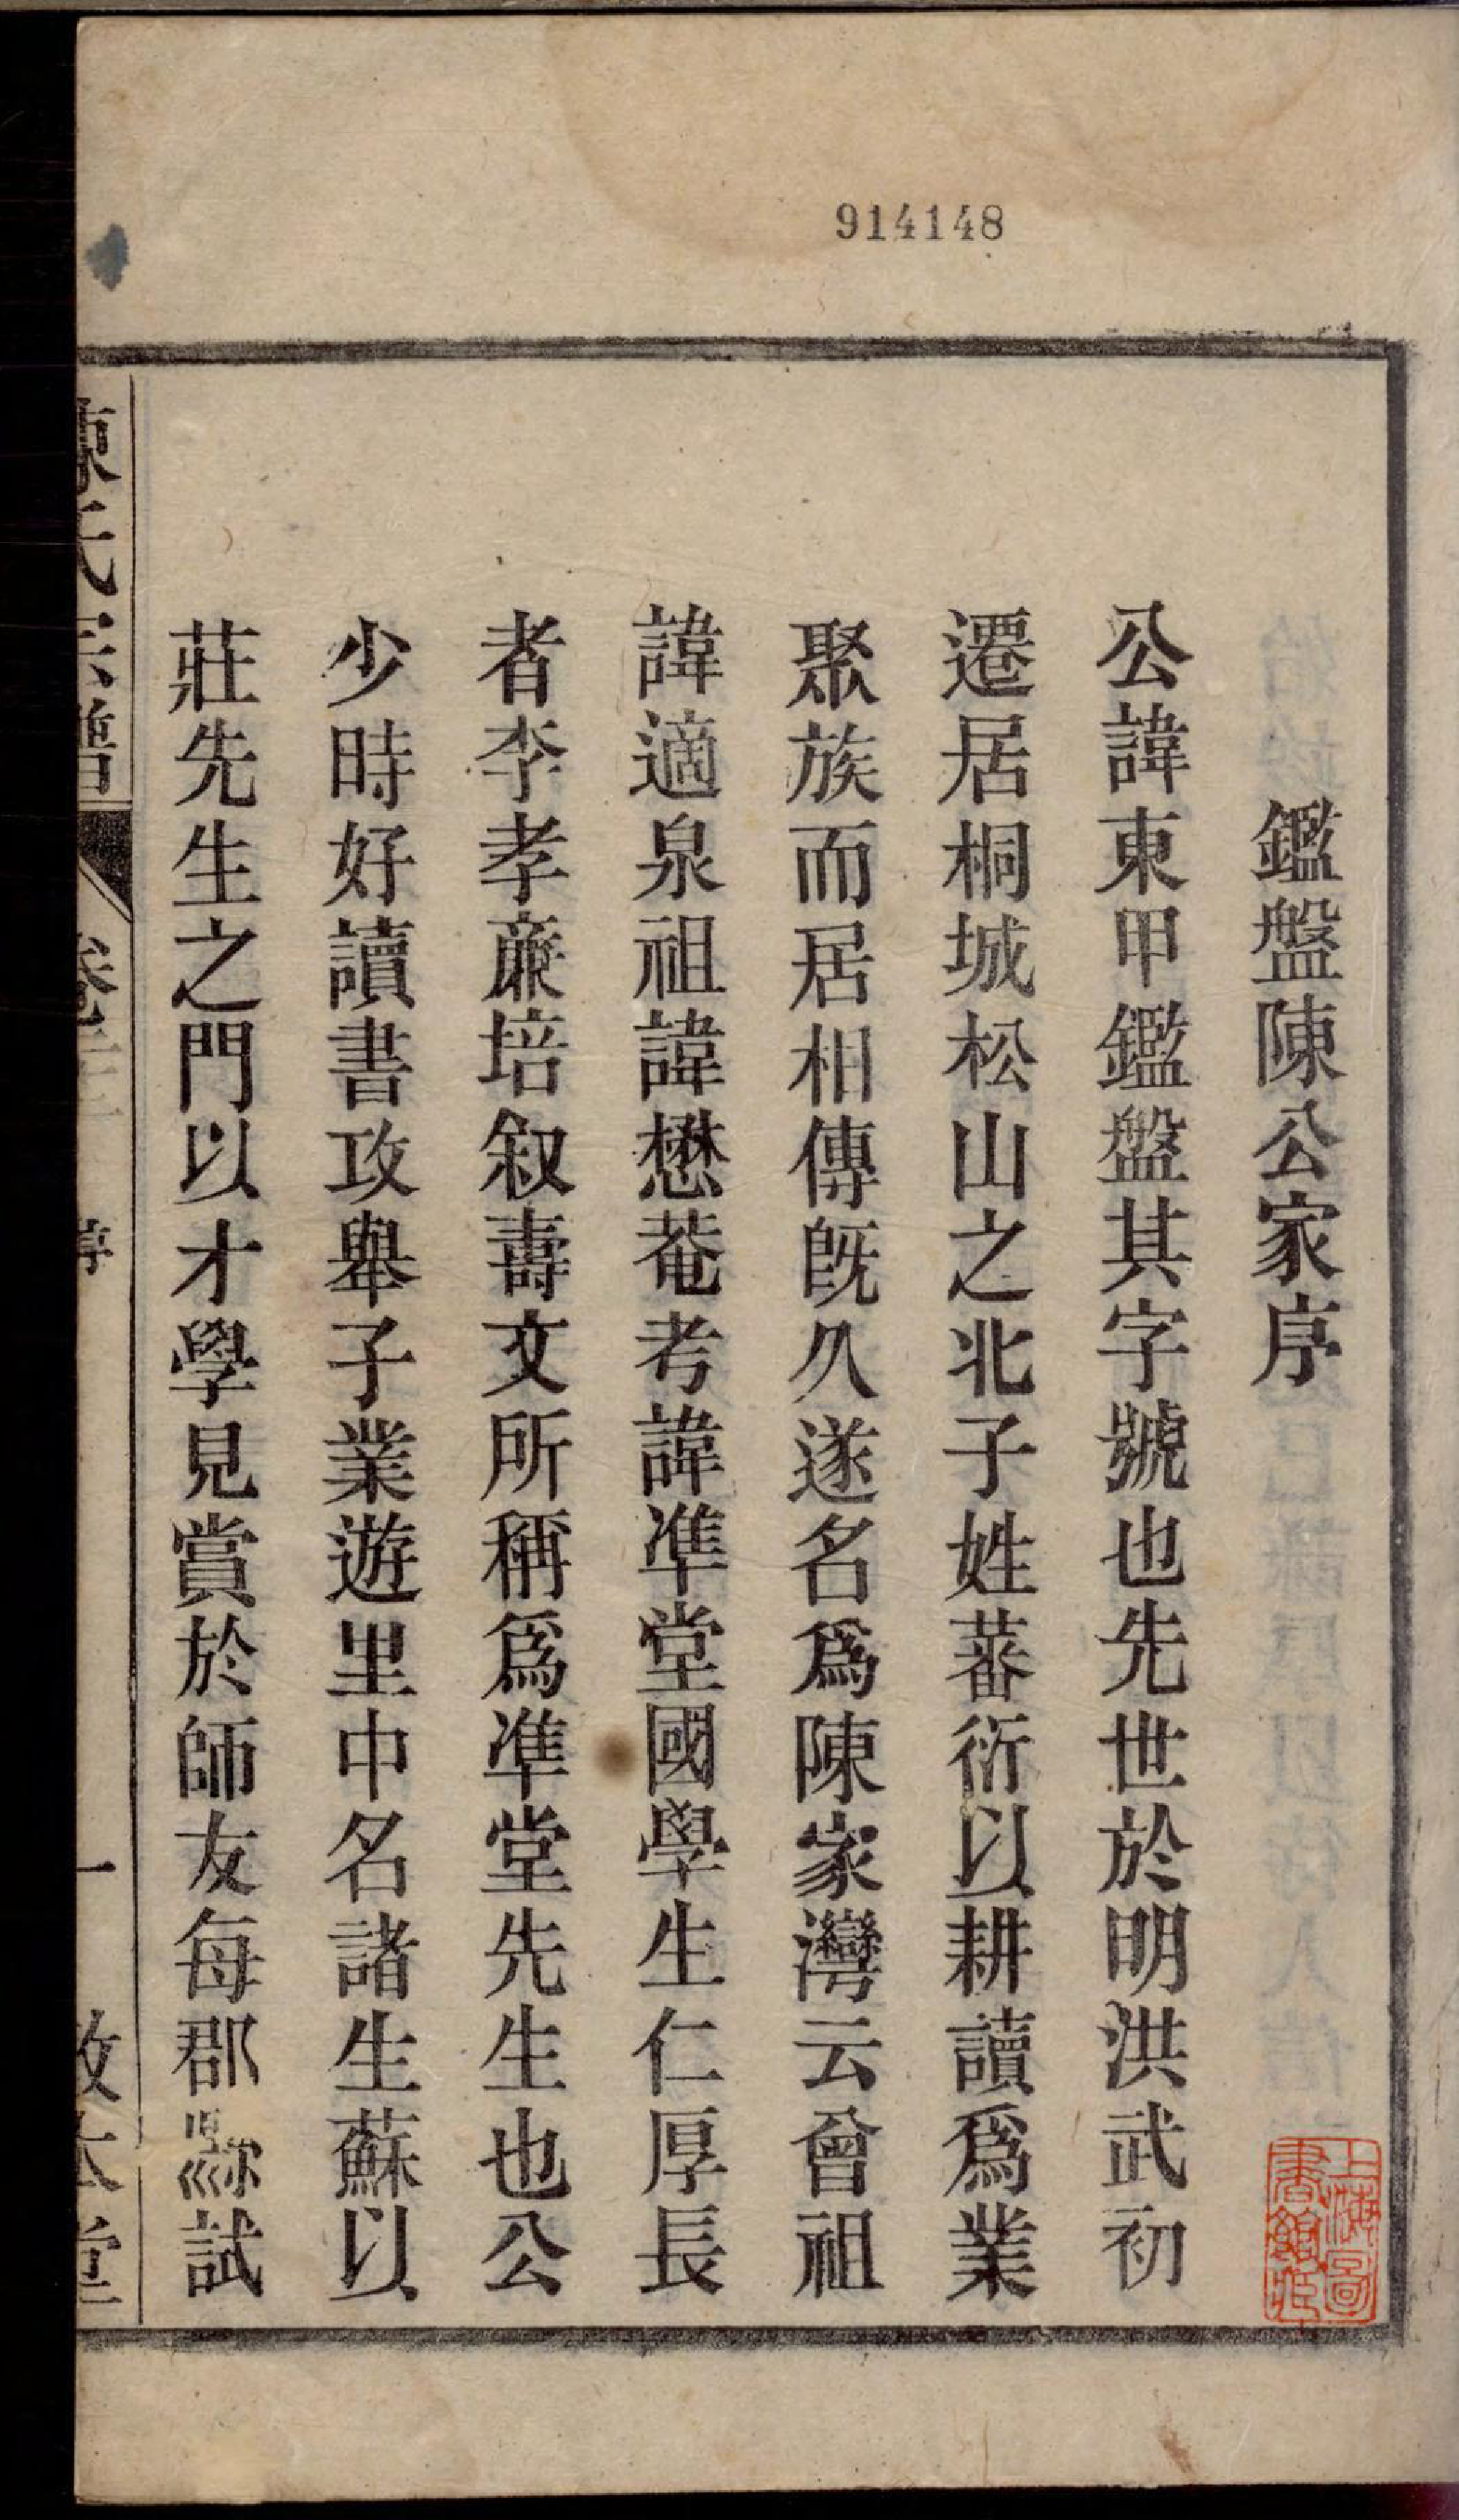 914148
鑑盤陳公家序
公諱東甲鑑盤其字號也先世於明洪武初
遷居桐城松山之北子姓蕃衍以耕讀爲業
聚族而居相傳旣久遂名爲陳家灣云曾祖
諱適泉祖諱懋菴考諱準堂國學生仁厚長
者李孝廉培叙壽文所稱爲準堂先生也公
少時好讀書攻舉子業遊里中名諸生蘇以
莊先生之門以才學見賞於師友每郡縣試
陳氏宗譜
一
上海圖書館藏